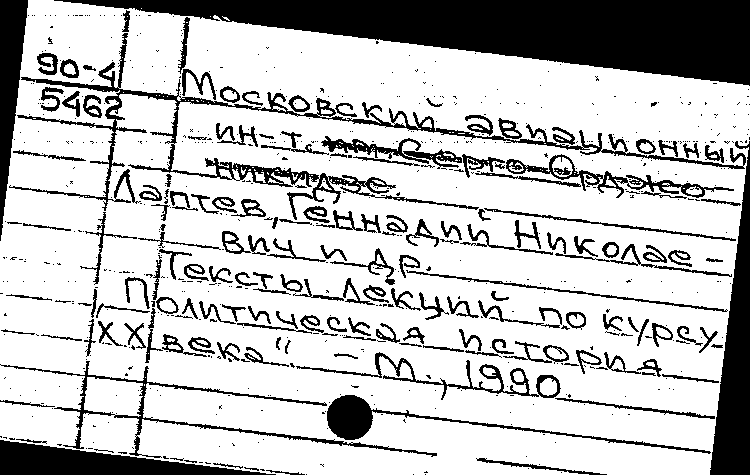 90-4
5462
Московский авиационный
ин-т. им. Серго Орджо-
никидзе.
Лаптев, Геннадий Николае-
вич и др.
Тексты лекций по курсу
„Политическая история
XX века“. – М., 1990.